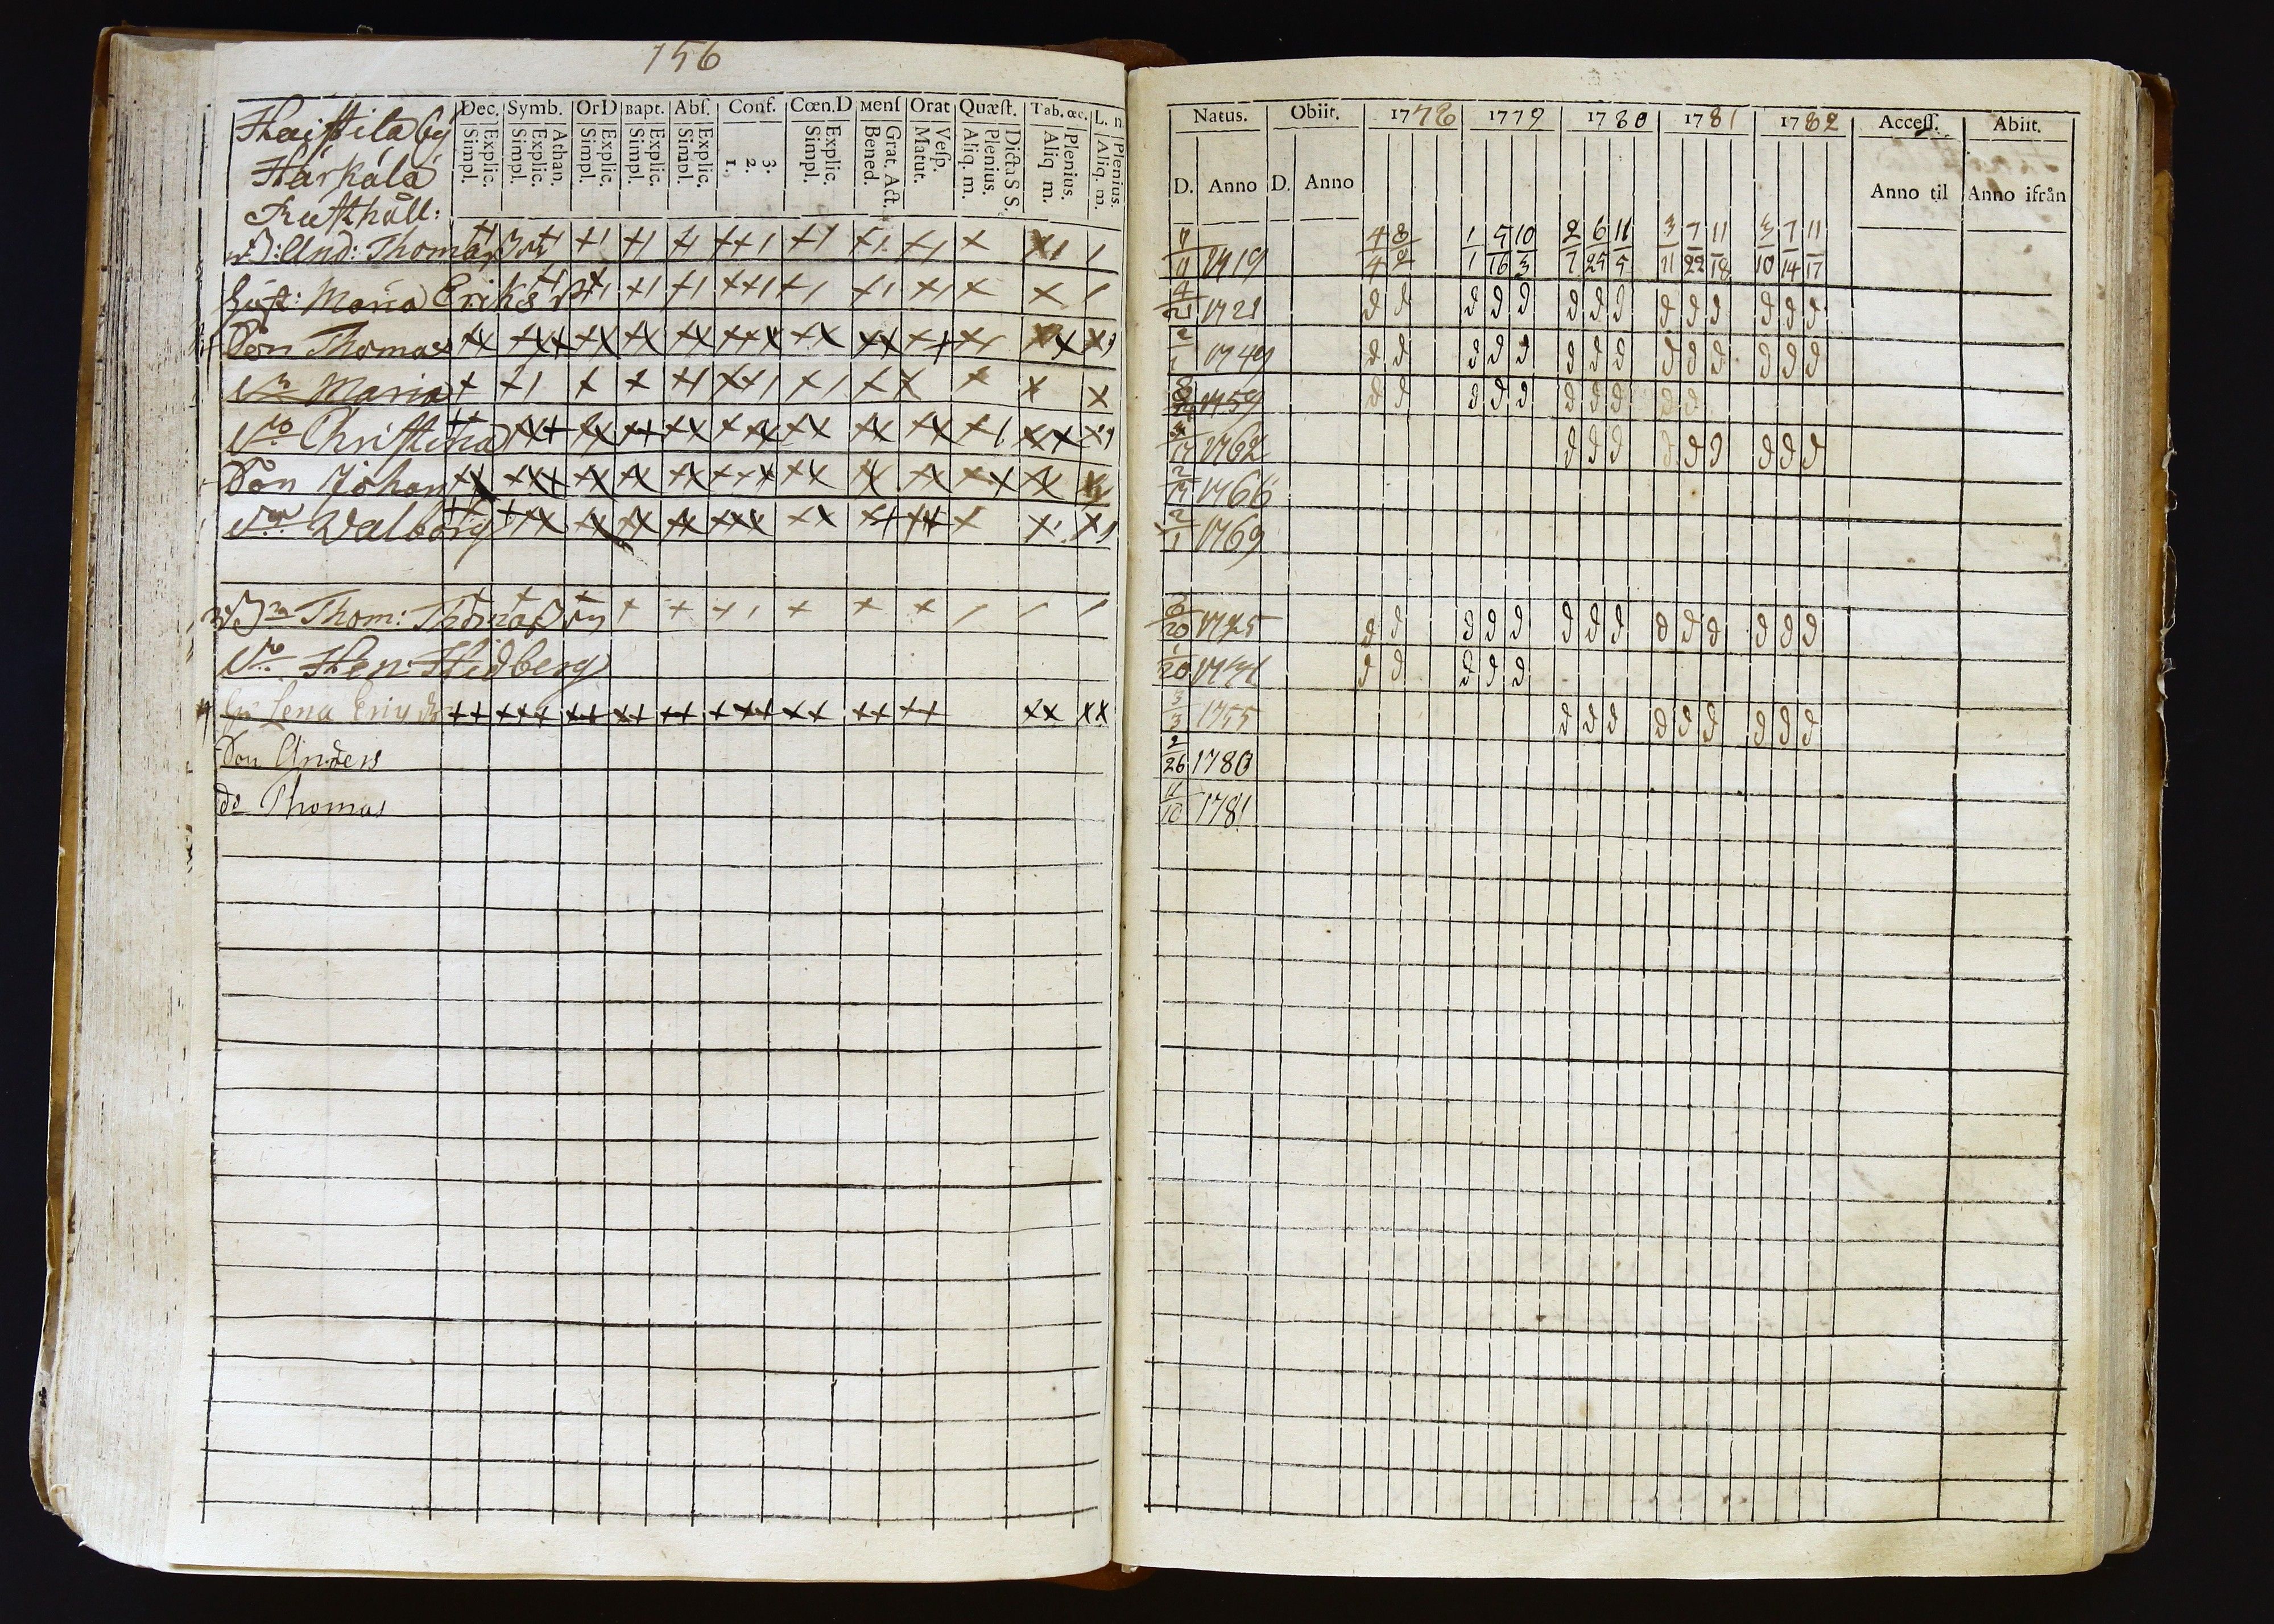 156
Dec. Symb. OrD Bapt. Abſ. Conf. Cœn.D Menſ Orat Quæſt. Tab.œc. L. n.
Explic. Simpl. Athan. Explic. Simpl. Explic. Simpl. Explic. Simpl. Explic. Simpl. 3. 2. 1. Explic. Simpl. Grat. Act. Bened. Veſp. Matut. Dicta S S. Plenius. Aliq. m. Plenius. Aliq m. Plenius. Aliq. m.
Haistila by
Härkälä
Rusthåll:
And: Thomasson
Hust: Maria Eriks
Son Thomas
Maria
Christina
Son Johan
Walborg
Thom: Thomasson
Hen: Hidberg
Lena
Son Anders
do Thomas
Natus. Obiit. 1778 1779 1780 1781 1782 Acceſſ. Abiit.
D. Anno D. Anno Anno til Anno ifrån
4 8 1 5 10 2 6 11 3 7 11 3 7 11
11 1719 4 2 1 16 3 7 25 5 11 22 18 10 14 17
4 21 1721 d d d d d d d d d d d d d d
2 1 1749 d d d d d d d d d d d d d d
8 1759 d d d d d d d d d d
17 1762 d d d d d d d d d
2 17 1766
2 1 1769
6 20 1725 d d d d d d d d d d d d d d
1 20 d d d d d
3 3 1755 d d d d d d d d d
2 26 1780
11 10 1781